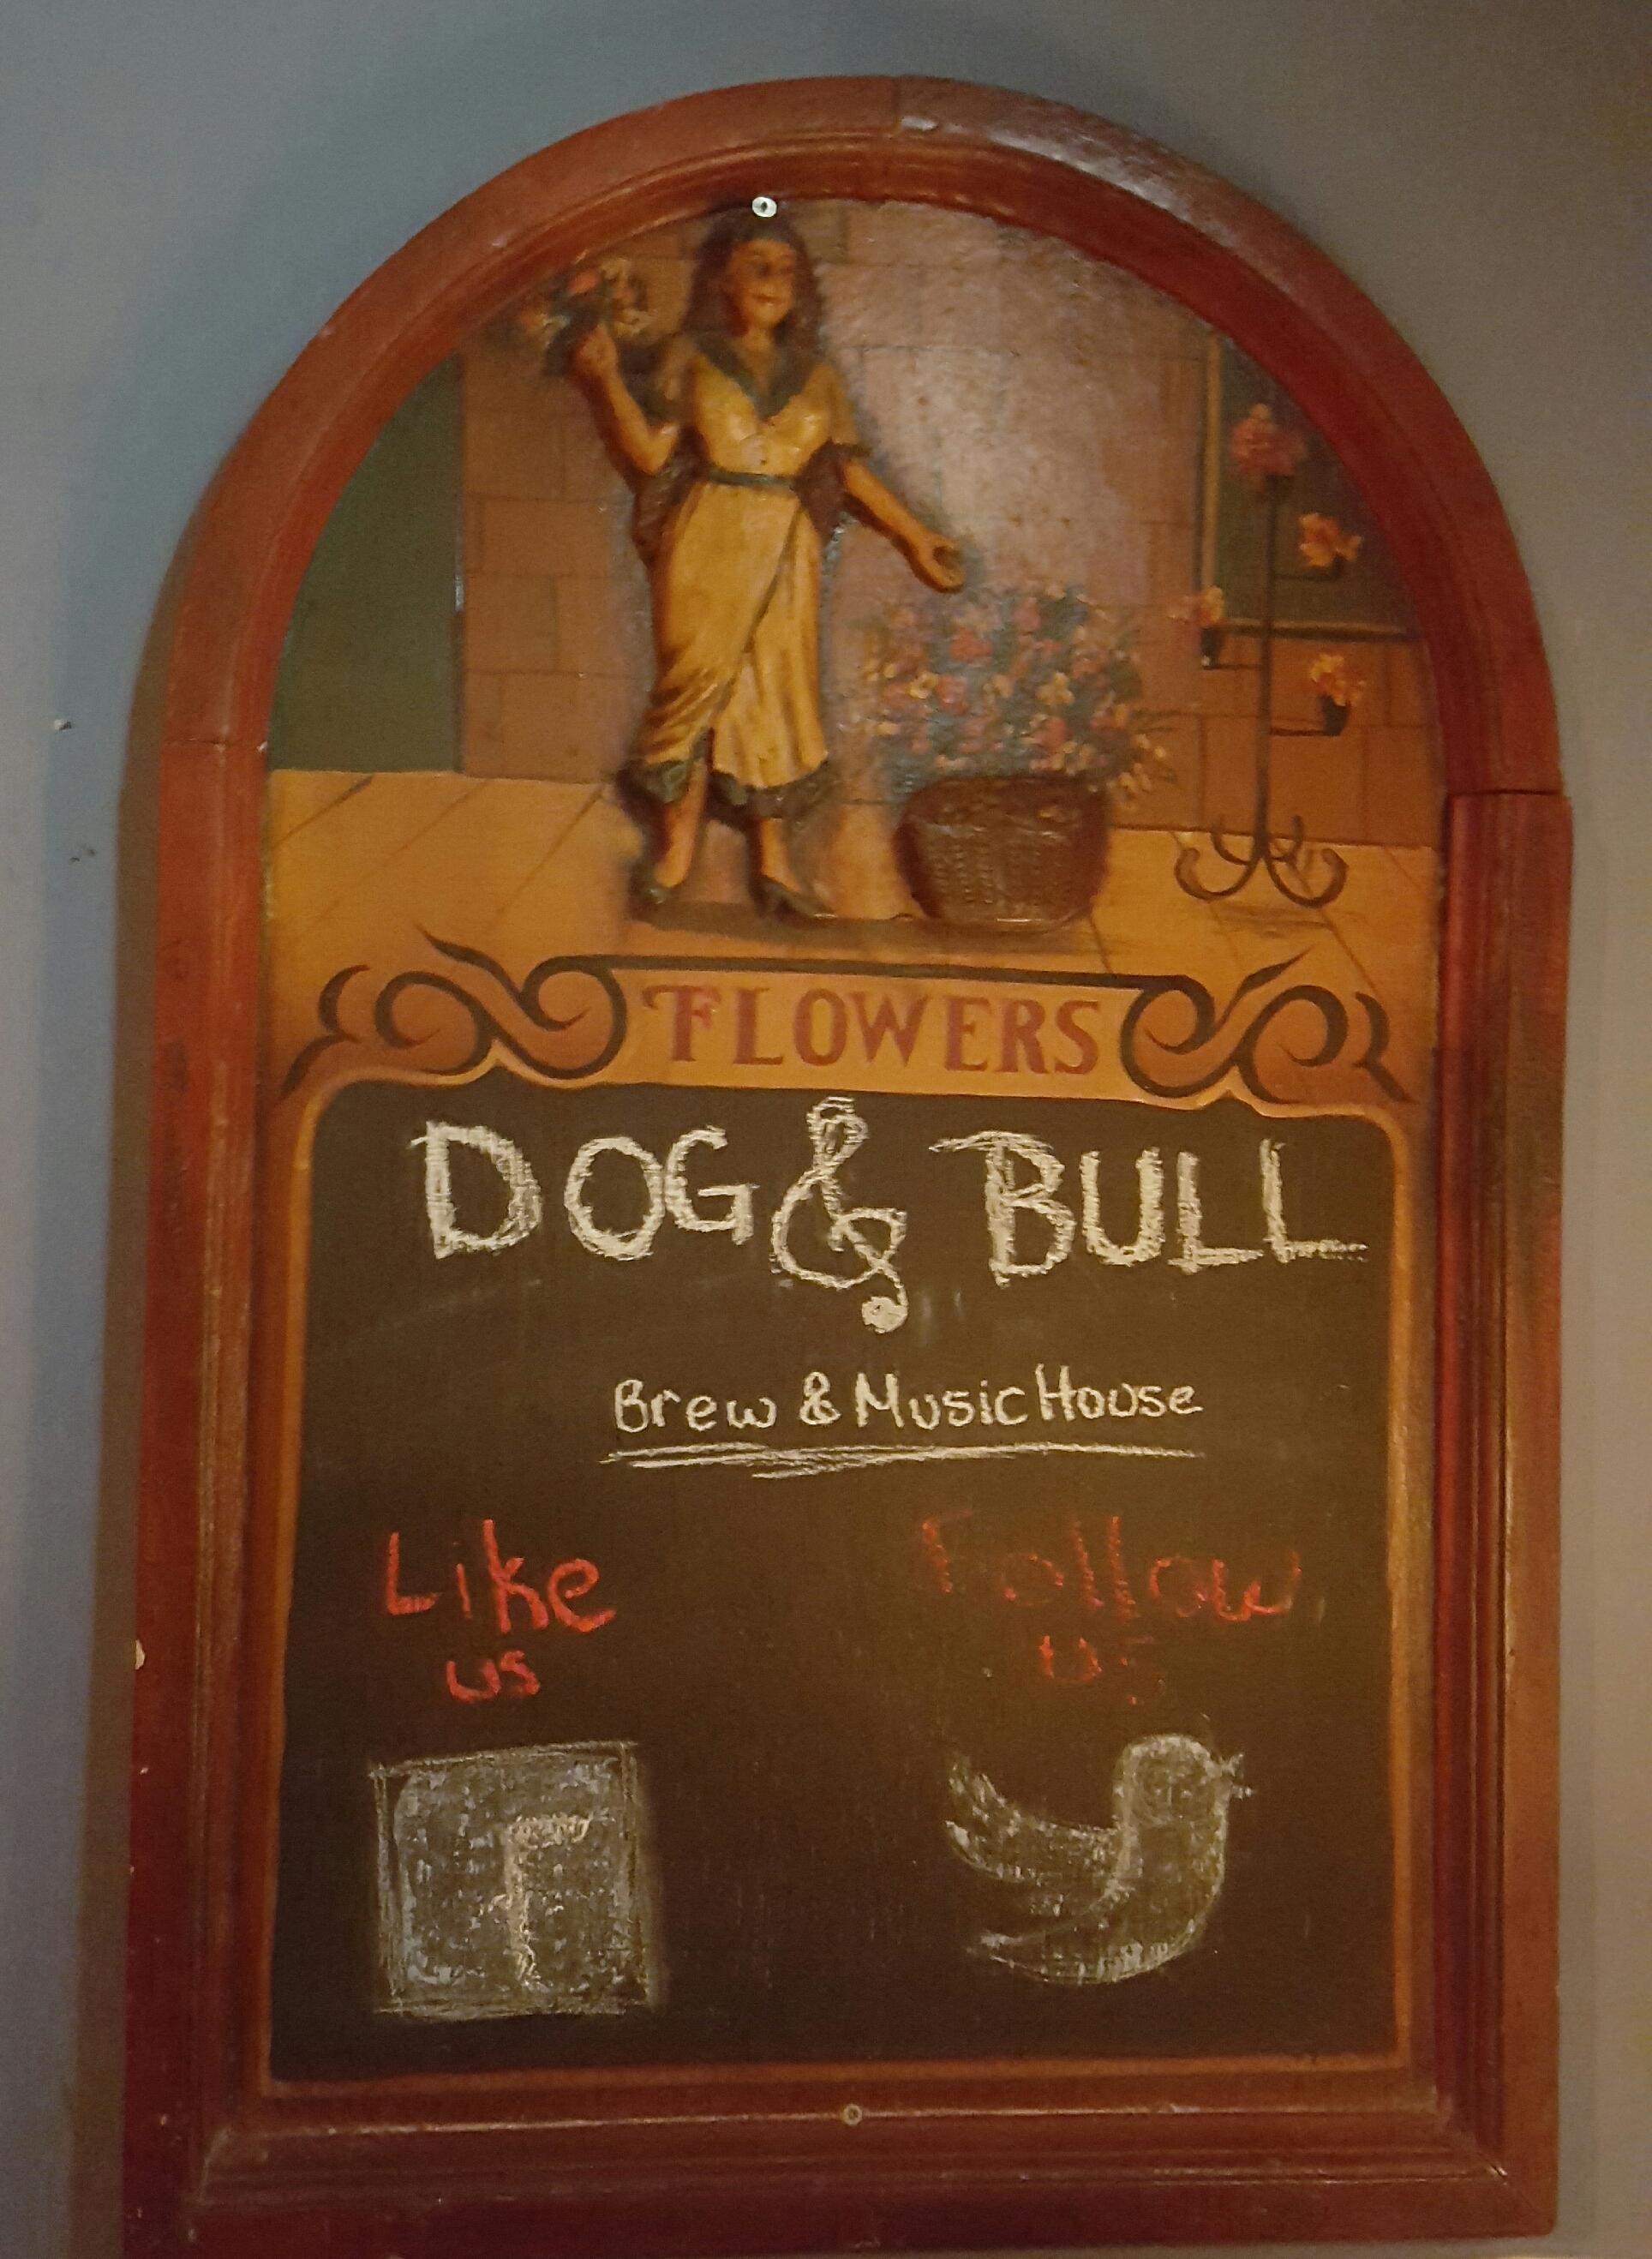 FLOWERS
DOG & BULL
Brew & Music House
Like
us
Follow
us
f